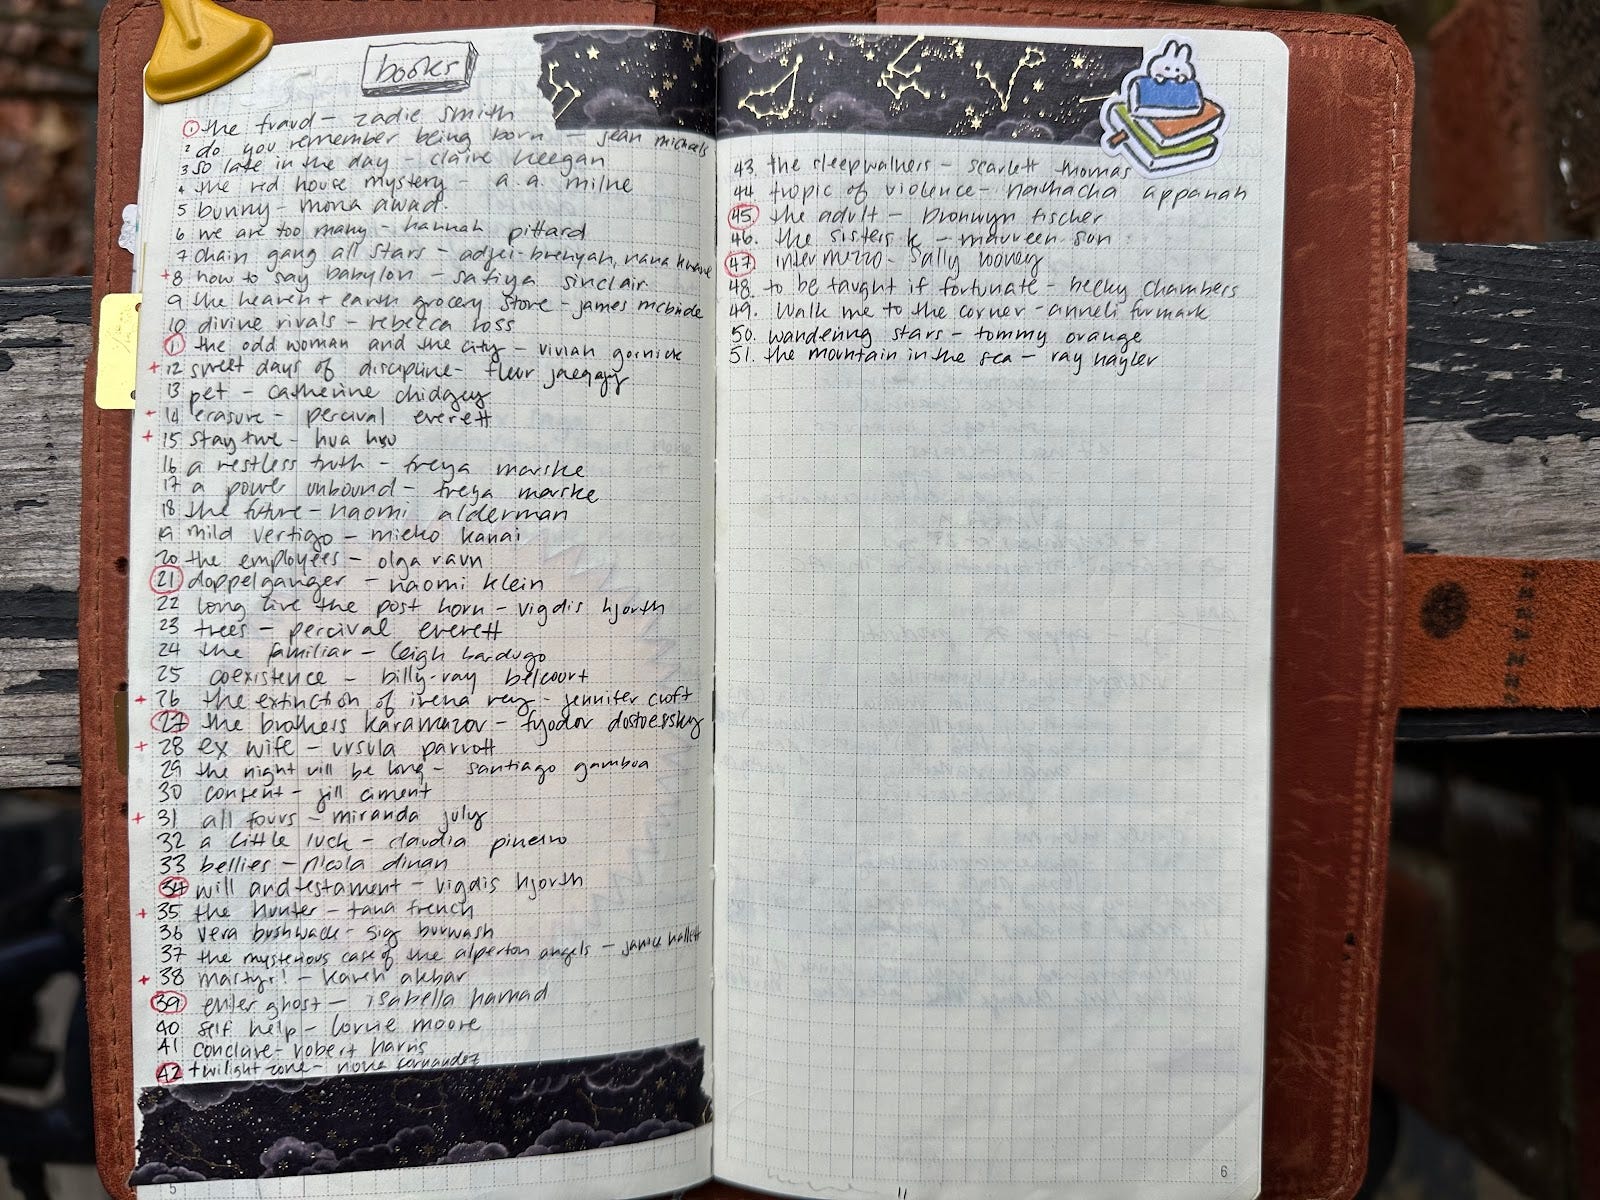 books
1 the fraud - zadie smith
2 do you remember being born - sean michaels
3 so late in the day - claire keegan
4 the red house mystery - a.a. milne
5 bunny - mona awad.
6 we are too many - hannah pittard
7 chain gang all stars - adjei-brenyah, nana kwame
+8 how to say babylon - safiya sinclair
9 the heaven + earth grocery store - james mcbride
10 divine rivals - rebecca ross
11 the odd woman and the city - vivian gornick
+12 sweet days of discipline - fleur jaeggy
13 pet - catherine chidgey
+14 erasure - percival everett
+15 stay true - hua hsu
16 a restless truth - freya marske
17 a power unbound - freya marske
18 the future - naomi alderman
19 mild vertigo - mieko kanai
20 the employees - olga ravn
21 doppelganger - naomi klein
22 long live the post horn - vigdis hjorth
23 trees - percival everett
24 the familiar - leigh bardugo
25 coexistence - billy-ray belcourt
+26 the extinction of irena rey - jennifer croft
27 the brothers karamazov - fyodor dostoevsky
+28 ex wife - ursula parrott
29 the night will be long - santiago gamboa
30 consent - jill ciment
+31 all fours - miranda july
32 a little luck - claudia pineiro
33 bellies - nicola dinan
34 will and testament - vigdis hjorth
+35 the hunter - tana french
36 vera bushwack - sig burwash
37 the mysterious case of the alperton angels - janice hallett
+38 martyr! - kaveh akbar
39 enter ghost - isabella hamad
40 self help - lorrie moore
41 conclave - robert harris
42 twilight zone - nona fernandez
5
43. the sleepwalkers - scarlett thomas
44 tropic of violence - nathacha appanah
45. the adult - bronwyn fischer
46. the sisters k - maureen sun
47. intermezzo - sally rooney
48. to be taught if fortunate - becky chambers
49. walk me to the corner - anneli furmark
50. wandering stars - tommy orange
51. the mountain in the sea - ray nayler
6
11